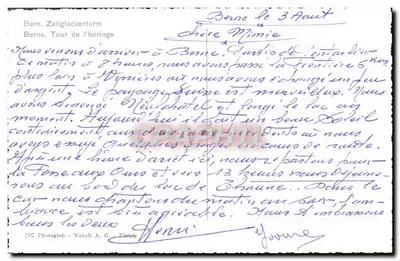 Bern. Zeitglockenturm
Berne. Tour de l'horloge
Berne le 3 Août
Chère Mimie
Nous venons d'arriver à Berne. Partis de
ce matin à 8 heures, nous avons passé la frontière 6 kms
plus loin à où nous avons échangé un peu
d'argent. Le paysage suisse est merveilleux. Nous
avons traversé Neuchâtel et longé le lac un
moment. Aujourd'hui il fait un beau soleil
contrairement aux où nous
avons essuyé quelques en cours de route.
Après une heure d'arrêt ici, nous repartons pour
la Fosse aux Ours et vers 13 heures nous déjeunerons
au bord du lac de Thoune. Dans le
car nous chantons du matin au soir. L'ambiance
est très agréable. Nous t'embrassons
tous les deux
Henri Yvonne
192 Photoglob - Wehrli A. G. - Zürich